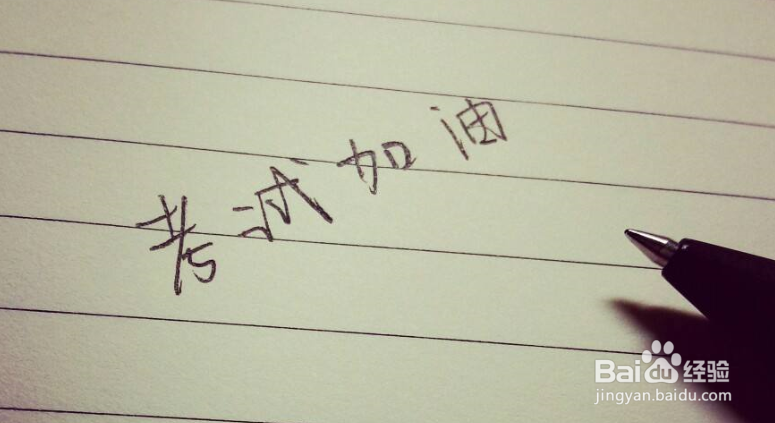 考试加油
Baidu经验
jingyan.baidu.com